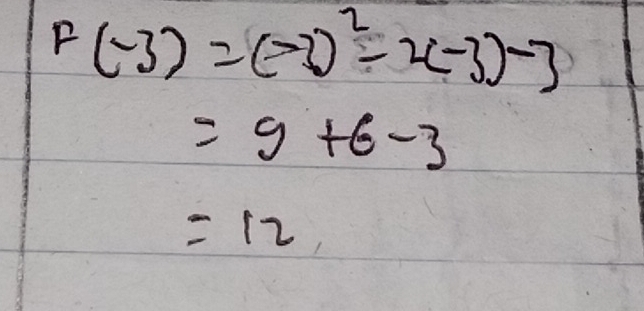 F(-3) = (-3)² - 2(-3) - 3
= 9 + 6 - 3
= 12